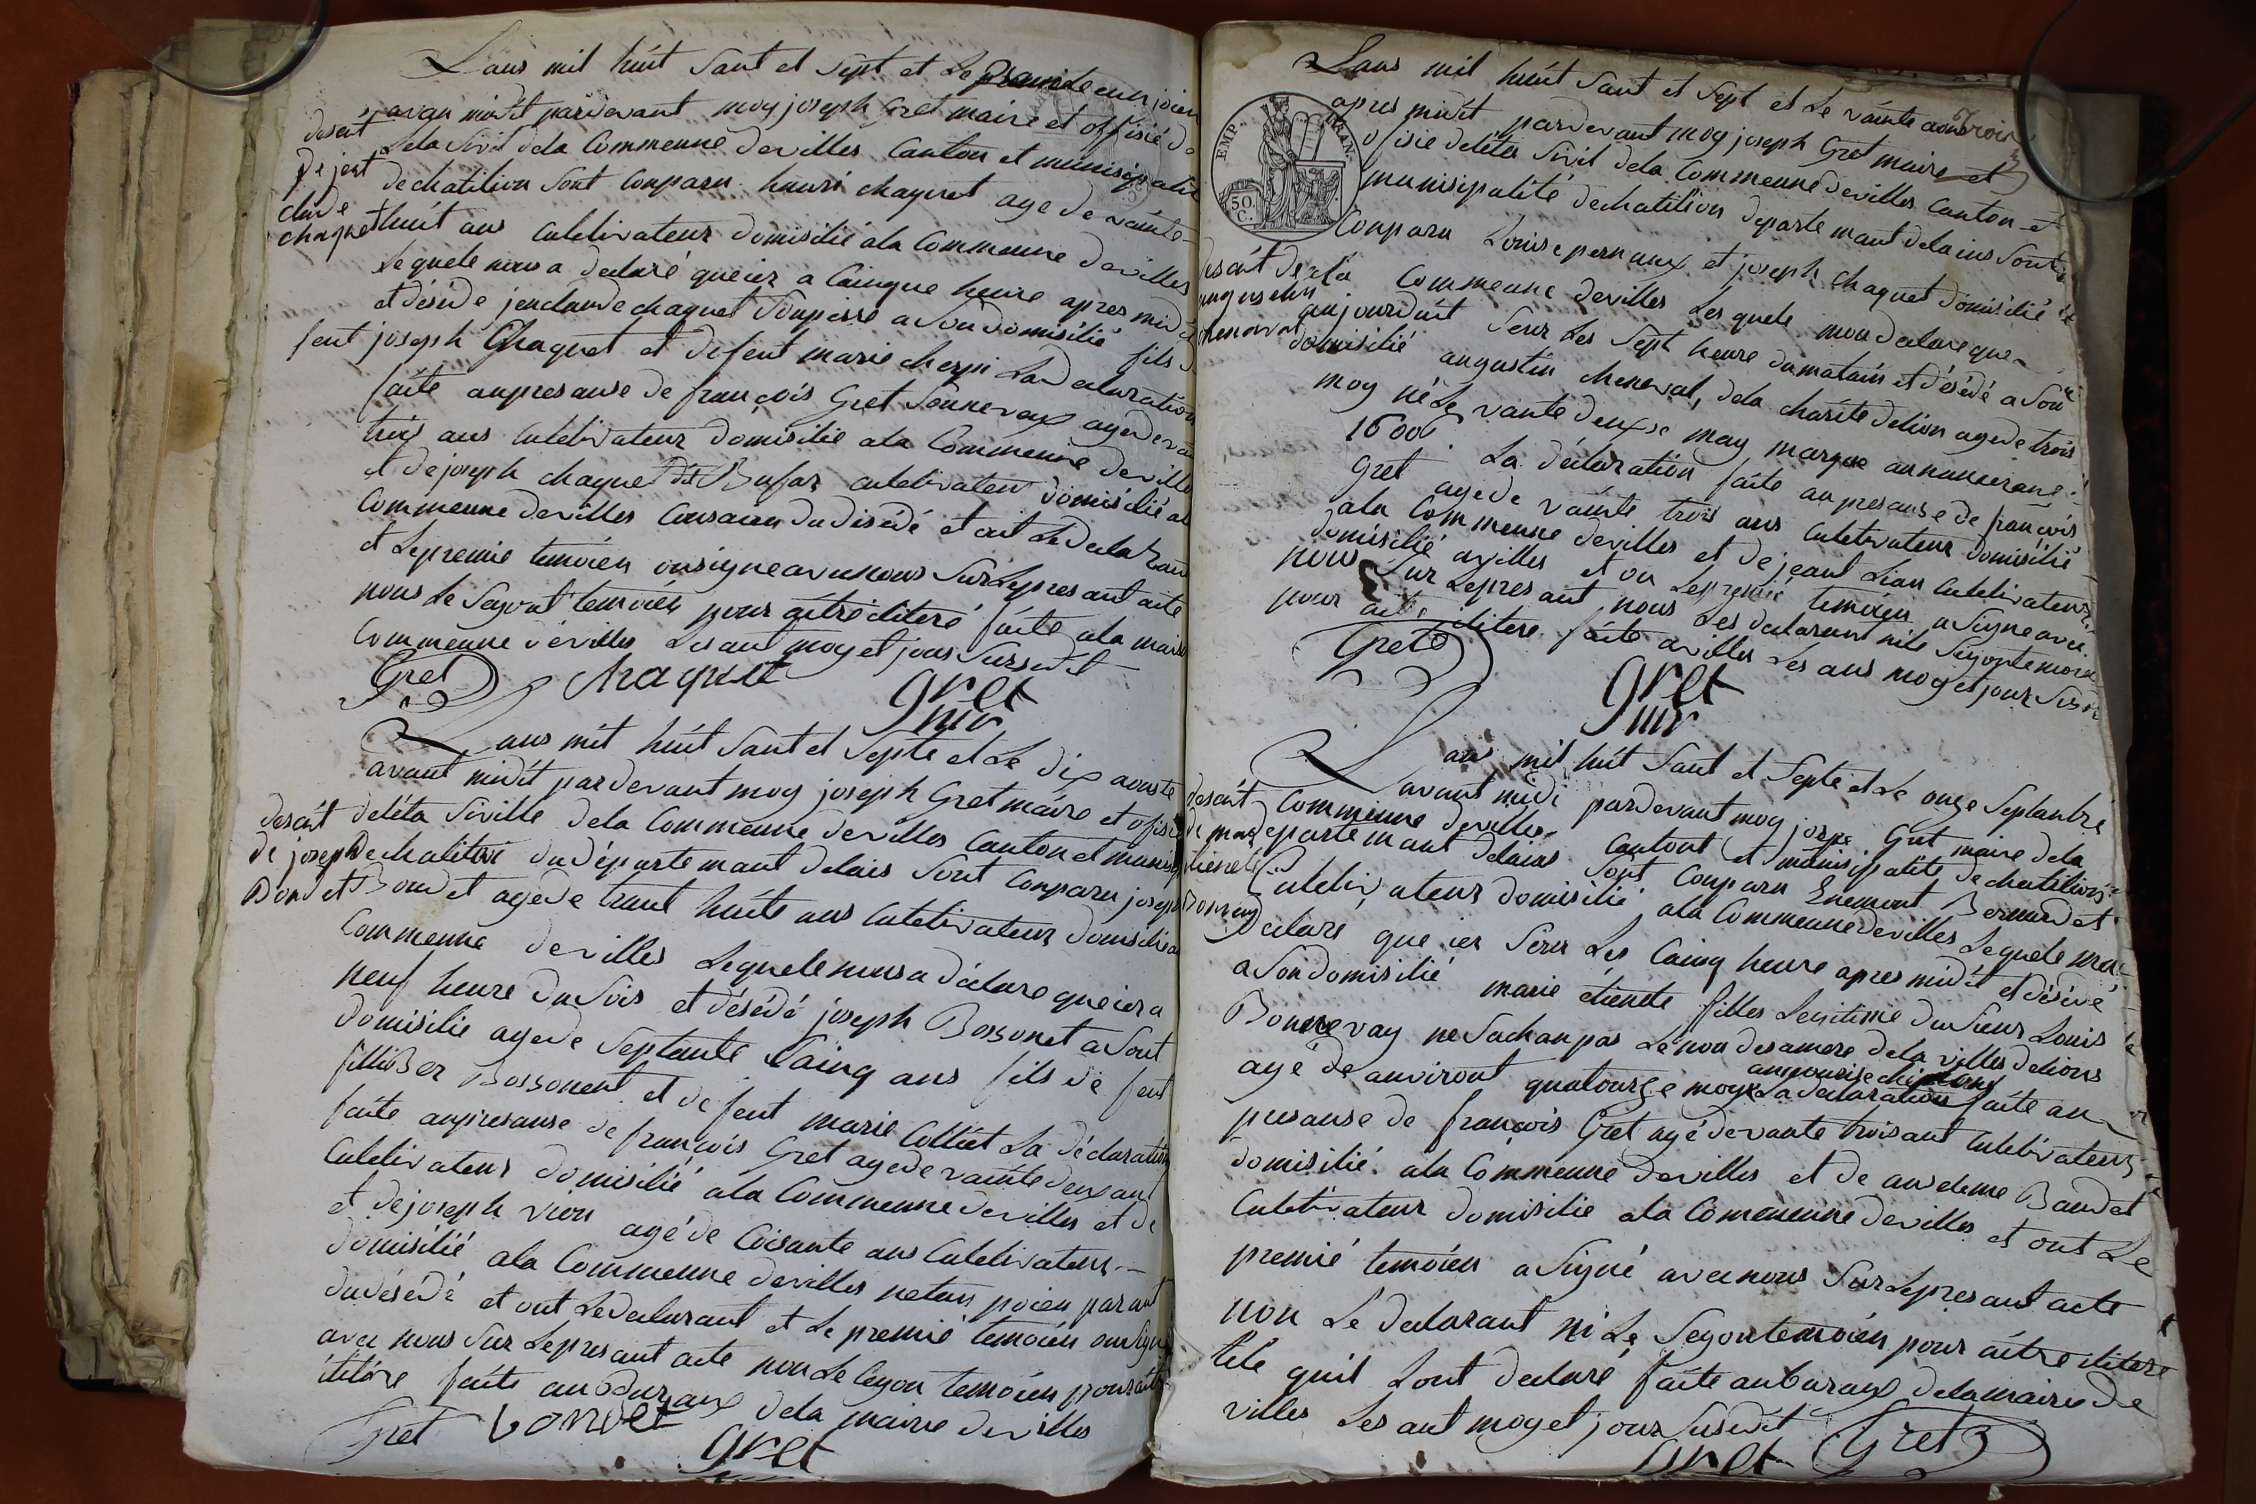 Lans mil huit Sant et Sept et Le premié de
avan midit pardevant moy joseph Gret maire et offisié de
desait
Leta Sivil dela Commeune devilles Canton et munisipalite
de jent
dechatilion Sont Conparu henri chaquet age de vainte
claude
chaquet
huit ans Culetivateur domisilié ala Commeune devilles
Lequele nous a declaré queier a Cainque heure apres midi
et désédé jenclaude chaquet Soupissé a Son domisilié fils de
feut joseph Chaquet et defeut marie chespi La declaration
faite anpresanse de françois Gret Sonnevoux agede vainte
trois ans Culetivateur domisilié ala Commeune devilles
et de joseph chaquet dit Bufar culetivateur domisilié ala
Commeune devilles Cousaien dudisédé et ont Ledeclaran
et Lepremie temoien onsigne avecnous Sur Lepresant acte
nous Le Segont temoien pour aitre itteré faite ala maire
Commeune devilles Lesant moy et jour Sursedit
Gret chaquet
gret
mir
Lans mit huit Sant et Septe et Le dix aouste
avant midit pardevant moy joseph Gret maire et ofisié
desait
deléta Siville dela Commeune devilles Canton et munisi
de joseph
dechatilion dudéparte mant delais Sont Conparu joseph
Bondet
Bondet agede trant huite ans Culetivateur domisilié a
Commeune devilles Lequele nous a déclare queier a
neuf heure du Soir et désédé joseph Bossonet a Sont
domisilie agede Septante Cainq ans fils de feut
filliBer Bossonent et de feut marie Colliet La déclaration
faite anpresanse de françois Gret agede vainte deux ans
Culetivateur domisilié ala Commeune devilles et de
et dejoseph vion agé de Coisante ans Culetivateur
domisilié ala Commeune devilles netan poien parant
dudésédé et ont Ledeclarant et Le premié temoien onsigne
avec nous Sur Lepresant acte non Le Cegon temoien pouraitre
ittére faite auBuraux dela mairie devilles
Gret bondet
gret
Lans mil huit Sant et Sept et Le vainte aous
trois
EMP. FRAN.
50. C.
apres midit pardevant moy joseph Gret maire et
ofisie deléta Sivil dela Commeune devilles Canton et
munisipalité dechatilion departe mant delains Sont
Conparu Louise pernaux et joseph chaquet domisilié
desait de
ala Commeune devilles Les quele mon declare que
augusten
chenaval
aujourduit Seur Les Sept heure dumatain et désédé a Son
domisilié augustin cheneval, dela charite delion agede trois
moy né Le vante deux de may marque aunumerane
16000 La déclaration faite anpresanse de françois
Gret agede vainte trois ans Culetivateur domisilié
ala Commeune devilles et de jeant Lian Culetivateur
domisilié avilles et on Lepremié temoien a Signe avec
nous Sur Lepresant nous Les declarant nile Segontemoien
pour aitre ittere faite avilles Les ans moy et jour Susdit
Gret
gret
mir
Lan mil huit Sant et Septe et Le onze Septanbre
avant midi pardevant moy jospe Gret maire dela
desait
Commeune devilles Cantont et munisipalité dechatilion
de marie
departe mant delains Sont Conparu Enemont Bernudet
tienete
Culetivateur domisilié ala Commeune devilles Lequele ma
Bonevay
declare que ier Seur Les Cainq heure apres midit et désédé
a Son domisilié marie étienete filles Legitime du Sieur Louis
Bonnevay ne Sachan pas Lenon desamere dela villes delions
agé de anviront quatourze moy La declaration faite an
presanse de françois Gret agé de vante troisant Culetivateur
domisilié ala Commeune devilles et de anteleme Baudet
Culetivateur domisilie ala Commeunne devilles et ont Le
premié temoien a Signé avecnous Sur Lepresant acte
non Le declarant ni Le Segontemoien pour aitre ittere
tele quil Lont declaré faite auburaux delamairie de
villes Les ant moy et jour Susedit
gret Gret